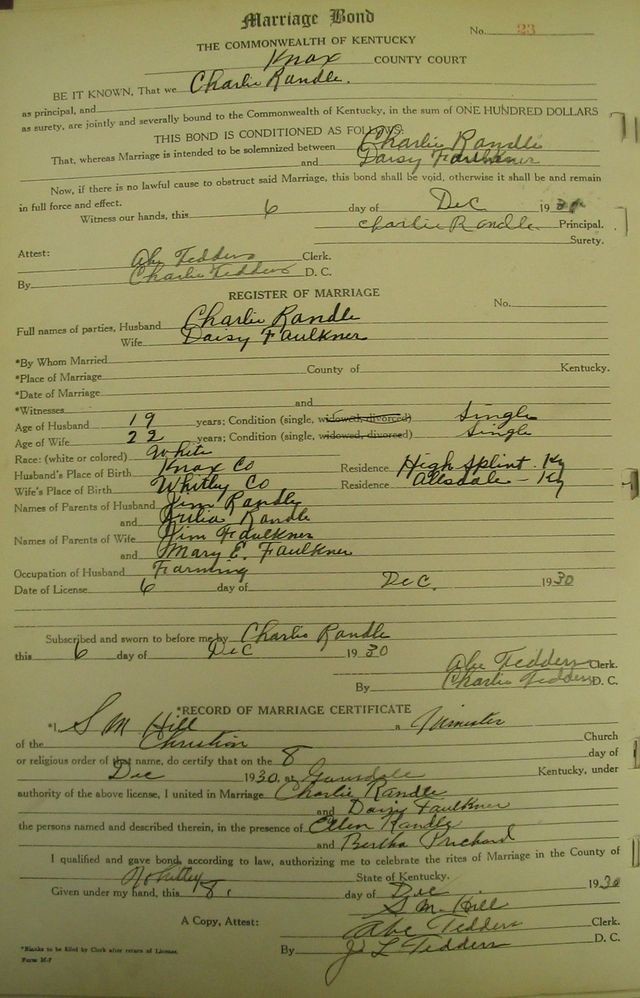 Marriage Bond
No. 23
THE COMMONWEALTH OF KENTUCKY
Knox COUNTY COURT
BE IT KNOWN, That we Charlie Randle.
as principal, and
as surety, are jointly and severally bound to the Commonwealth of Kentucky, in the sum of ONE HUNDRED DOLLARS
THIS BOND IS CONDITIONED AS FOLLOWS:
That, whereas Marriage is intended to be solemnized between Charlie Randle
and Daisy Faulkner
Now, if there is no lawful cause to obstruct said Marriage, this bond shall be void, otherwise it shall be and remain
in full force and effect.
Witness our hands, this 6 day of Dec 1930
Charlie Randle Principal.
Surety.
Attest: Abe Tedders Clerk.
By Charlie Tedders D. C.
REGISTER OF MARRIAGE
No.
Full names of parties, Husband Charlie Randle
Wife Daisy Faulkner
*By Whom Married
*Place of Marriage County of Kentucky.
*Date of Marriage
*Witnesses and
Age of Husband 19 years; Condition (single, widowed, divorced) Single
Age of Wife 22 years; Condition (single, widowed, divorced) Single
Race: (white or colored) White
Husband's Place of Birth Knox Co Residence High Splint. Ky
Wife's Place of Birth Whitley Co Residence - Ky
Names of Parents of Husband Jim Randle
and Julia Randle
Names of Parents of Wife Jim Faulkner
and Mary E. Faulkner
Occupation of Husband Farming
Date of License 6 day of Dec. 1930
Subscribed and sworn to before me by Charlie Randle
this 6 day of Dec 1930
Abe Tedders Clerk.
By Charlie Tedders D. C.
*RECORD OF MARRIAGE CERTIFICATE
*I, S M Hill a Minister
of the Christian Church
or religious order of that name, do certify that on the 8 day of
Dec 1930, at Kentucky, under
authority of the above license, I united in Marriage Charlie Randle
and Daisy Faulkner
the persons named and described therein, in the presence of Ellen Randle
and Bertha Prichard
I qualified and gave bond, according to law, authorizing me to celebrate the rites of Marriage in the County of
Whitley State of Kentucky.
Given under my hand, this 8, day of Dec. 1930
S. M. Hill
A Copy, Attest: Abe Tedders Clerk.
By J. L Tedders D. C.
*Blanks to be filled by Clerk after return of License.
Form M-7